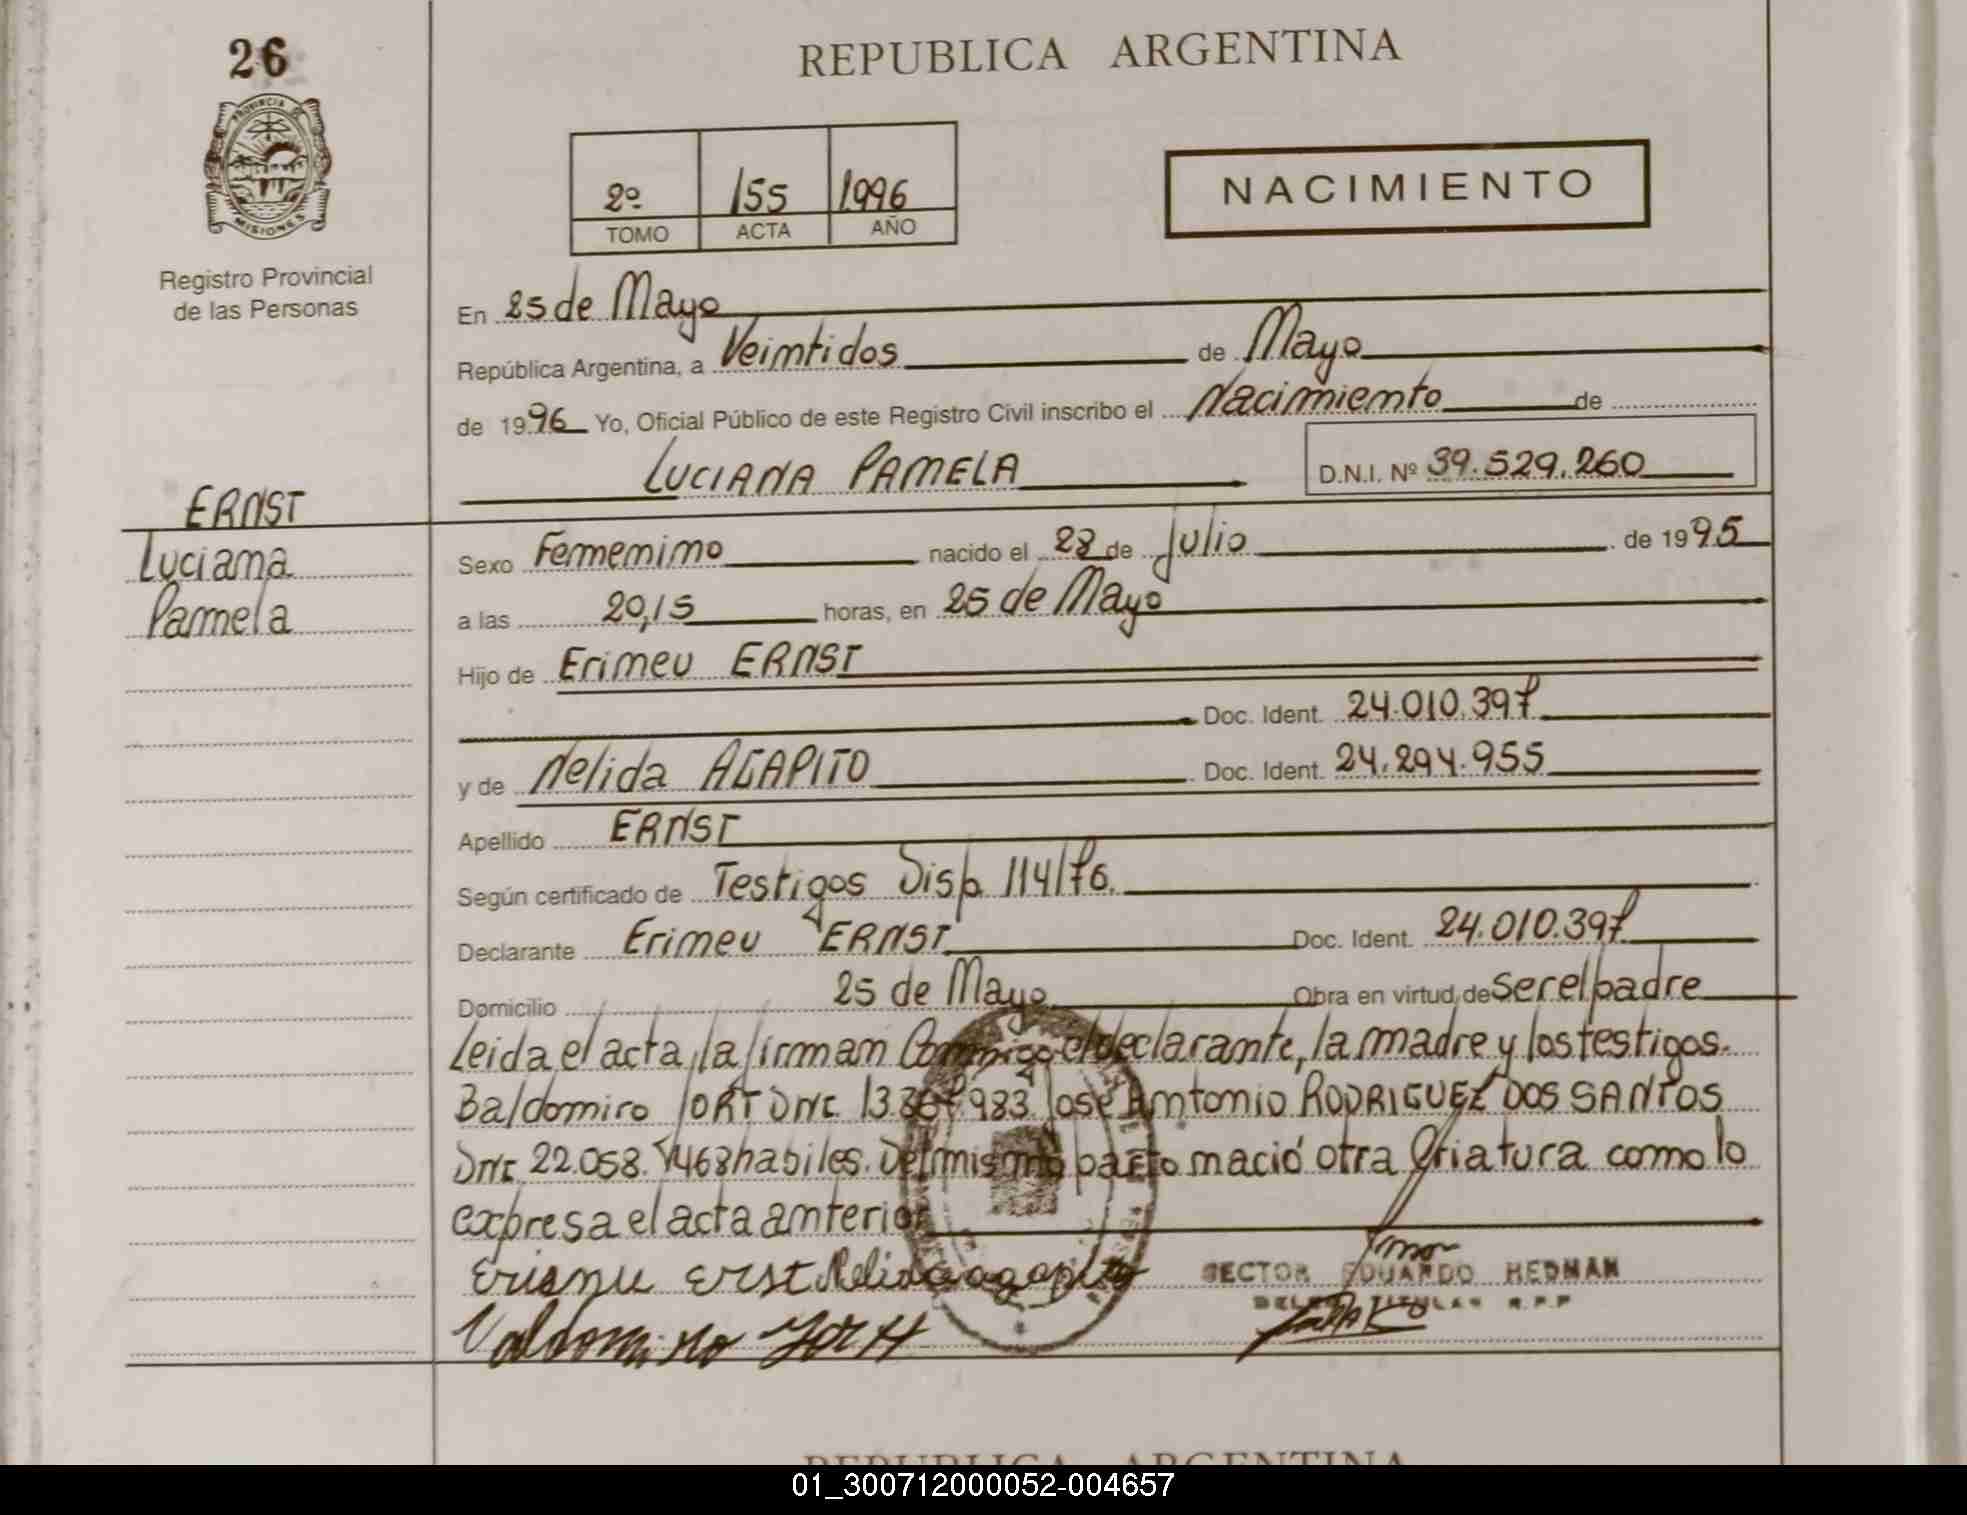 26
REPUBLICA ARGENTINA
PROVINCIA DE
MISIONES
2º 155 1996
TOMO ACTA AÑO
NACIMIENTO
Registro Provincial
de las Personas
En 25 de Mayo
República Argentina, a Veintidos de Mayo
de 1996 Yo, Oficial Público de este Registro Civil inscribo el Nacimiento de
LUCIANA PAMELA D.N.I. Nº 39.529.260
ERNST
Luciana
Pamela
Sexo Femenino nacido el 28 de Julio de 1995
a las 20,15 horas, en 25 de Mayo
Hijo de Erineu ERNST
Doc. Ident. 24.010.397
y de Nelida AGAPITO Doc. Ident. 24.294.955
Apellido ERNST
Según certificado de Testigos Disp. 114/76.
Declarante Erineu ERNST Doc. Ident. 24.010.397
Domicilio 25 de Mayo Obra en virtud de ser el padre
Leida el acta, la firman Conmigo el declarante, la madre y los testigos.
Baldomiro JORT DNI. 13.367.983 José Antonio RODRIGUEZ DOS SANTOS
DNI. 22.058.468 habiles. Del mismo parto nació otra Criatura como lo
expresa el acta anterior
Nelida agapito
HECTOR EDUARDO HEDMAN
TITULAR R.P.P
REPUBLICA ARGENTINA
01_300712000052-004657